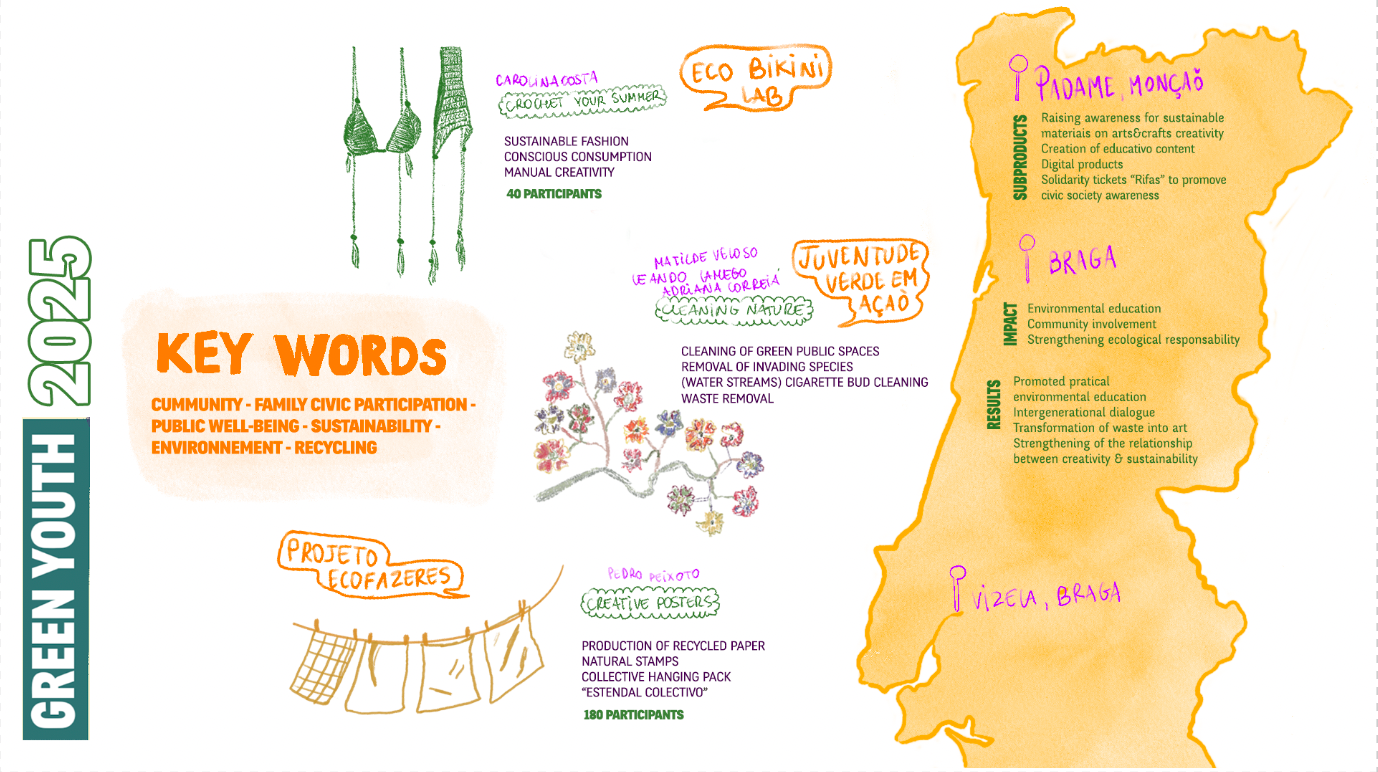 GREEN YOUTH 2025
CAROLINA COSTA
CROCHET YOUR SUMMER
ECO BIKINI
LAB
SUSTAINABLE FASHION
CONSCIOUS CONSUMPTION
MANUAL CREATIVITY
40 PARTICIPANTS
MATILDE VELOSO
LEANDO LAMEGO
ADRIANA CORREIA
CLEANING NATURE
JUVENTUDE
VERDE EM
AÇAÕ
CLEANING OF GREEN PUBLIC SPACES
REMOVAL OF INVADING SPECIES
(WATER STREAMS) CIGARETTE BUD CLEANING
WASTE REMOVAL
KEY WORDS
CUMMUNITY - FAMILY CIVIC PARTICIPATION -
PUBLIC WELL-BEING - SUSTAINABILITY -
ENVIRONNEMENT - RECYCLING
PROJETO
ECOFAZERES
PEDRO PEIXOTO
CREATIVE POSTERS
PRODUCTION OF RECYCLED PAPER
NATURAL STAMPS
COLLECTIVE HANGING PACK
“ESTENDAL COLECTIVO”
180 PARTICIPANTS
PADAME, MONÇAÕ
SUBPRODUCTS
Raising awareness for sustainable
materiais on arts&crafts creativity
Creation of educativo content
Digital products
Solidarity tickets “Rifas” to promove
civic society awareness
BRAGA
IMPACT
Environmental education
Community involvement
Strengthening ecological responsability
RESULTS
Promoted pratical
environmental education
Intergenerational dialogue
Transformation of waste into art
Strengthening of the relationship
between creativity & sustainability
VIZELA, BRAGA